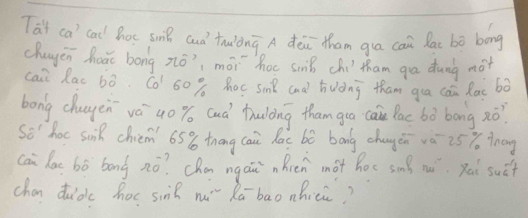 Tất cả các học sinh của trường A đều tham gia câu lạc bộ bóng
chuyền hoặc bóng rổ, mỗi học sinh chỉ tham gia đúng một
câu lạc bộ. Có 60% học sinh của trường tham gia câu lạc bộ
bóng chuyền và 40% của trường tham gia câu lạc bộ bóng rổ.
Số học sinh chiếm 65% trong câu lạc bộ bóng chuyền và 25% trong
câu lạc bộ bóng rổ. Chọn ngẫu nhiên một học sinh nữ. Xác suất
chọn được học sinh nữ là bao nhiêu?